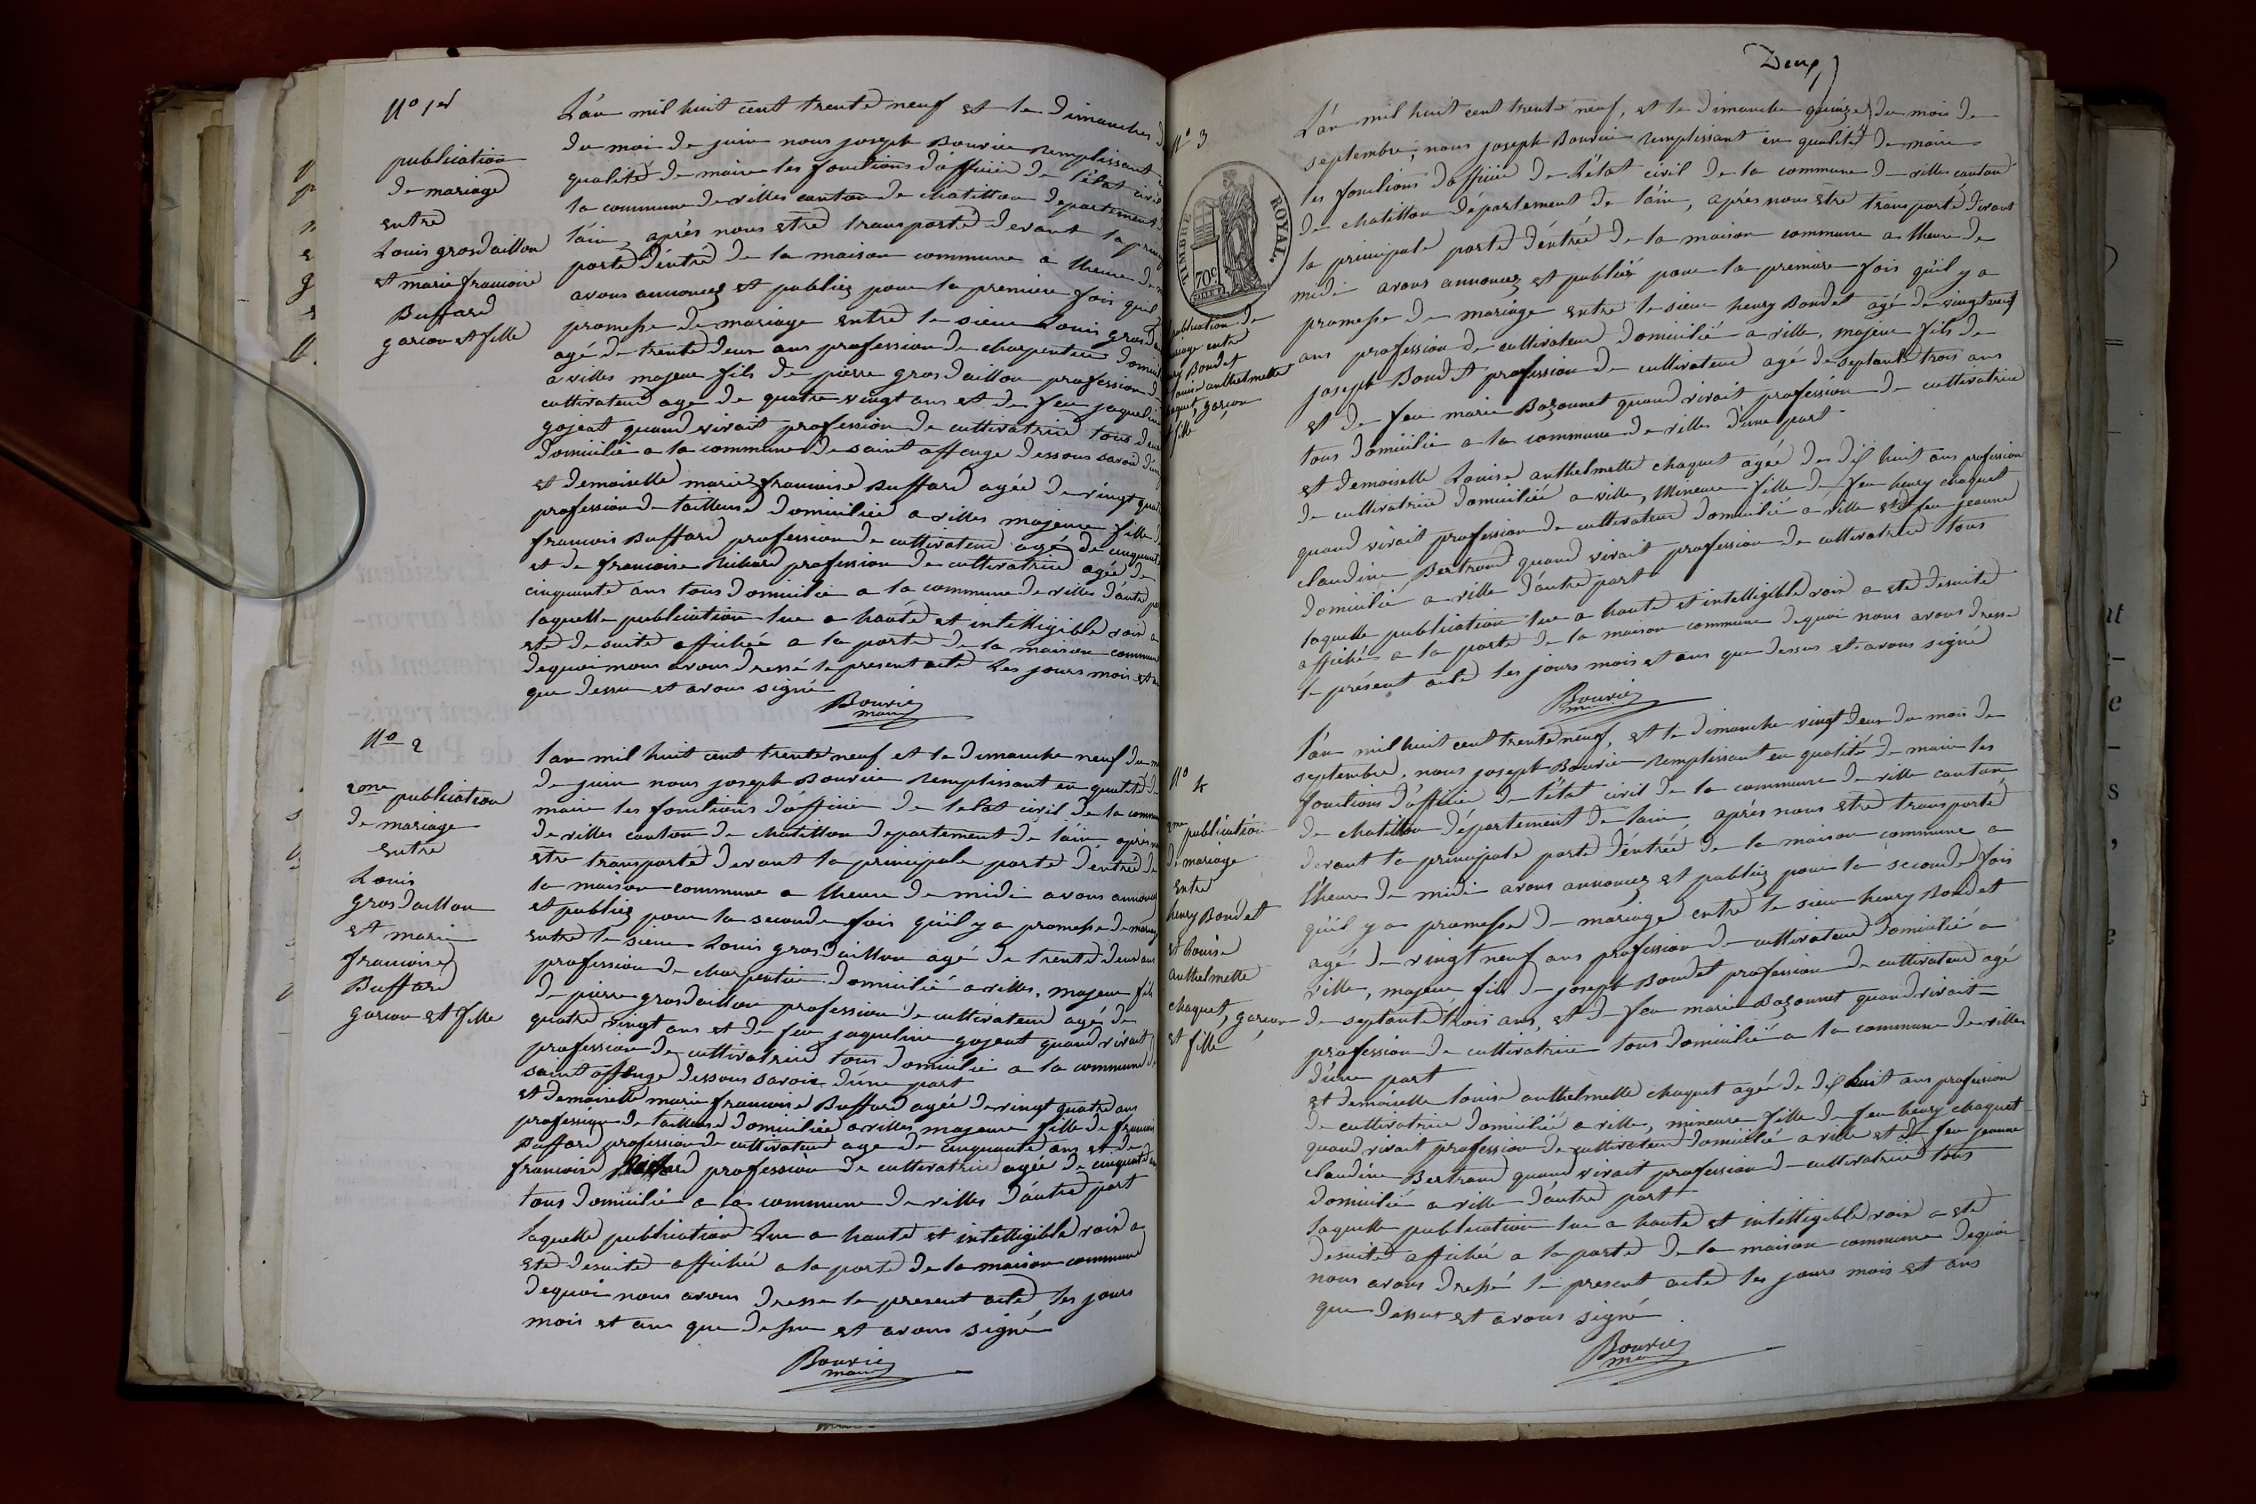 No 1er
publication
de mariage
entre
Louis grosdaillon
et marie francoise
Buffard
garcon et fille
L'an mil huit cent trente neuf et le dimanche
du moi de juin nous joseph Bouvier remplissant
qualité de maire les fonctions d'officier de l'état civil
la commune de villes canton de chatillon departement
l'ain, après nous etre transporté devant la
porte d'entré de la maison commune a lheure de
avons annoncez et publiez pour la premiere fois quil
promesse de mariage entre le sieur Louis
agé de trente deux ans profession de charpentier
a villes majeur fils de pierre grosdaillon profession de
cultivateur age de quatre vingt ans et de feu jaqueline
gojeat quand vivait profession de cultivatrice tous deux
domicilié a la commune de saint offenge dessous savoir
et demoiselle marie francoise Buffard agée de vingt
profession de tailleuse domiciliée a villes majeure fille
francois Buffard profession de cultivateur agé de
et de francoise Richard profession de cultivatrice agée de
cinquante ans tous domicilié a la commune de villes d'autre
laquelle publication lue a haute et intelligible voix a
ete de suite affichée a la porte de la maison commune
de quoi nous avons dressé le present acte les jours mois et
que dessu et avons signé
Bouvier
maire
No 2
2eme publication
de mariage
entre
Louis
grosdaillon
et marie
francoise
Buffard
garcon et fille
l'an mil huit cent trente neuf et le dimanche neuf du
de juin nous joseph Bouvier remplissant en qualité de
maire les fonctions d'officier de letat civil de la
de villes canton de chatillon departement de l'ain après
etre transporté devant la principale porte d'entrée de
la maison commune a lheure de midi avons
et publiez pour la seconde fois qu'il y a promesse de
entre le sieur Louis grosdaillon agé de trente deux ans
profession de charpentier domicilié a villes, majeur fils
de pierre grosdaillon profession de cultivateur agé de
quatre vingt ans et de feu jaqueline gojeat quand vivait
profession de cultivatrice tous domicilié a la commune
saint offenge dessous savoir d'une part
et demoiselle marie francoise Buffard agée de vingt quatre ans
profession de tailleuse domiciliée a villes majeure fille de francois
Buffard profession de cultivateur age de cinquante ans et de
francoise profession de cultivatrice agée de
tous domicilié a la commune de villes d'autre part
laquelle publication lue a haute et intelligible voix a
ete de suite affichée a la porte de la maison commune
de quoi nous avons dresse le present acte les jours
mois et an que dessu et avons signé
Bouvier
maire
Deux
No 3
TIMBRE ROYAL.
70c
publication de
mariage entre
Boudet
Louise anthelmette
chaquet, garcon
et fille
L'an mil huit cent trente neuf, et le dimanche quinze du mois de
septembre, nous joseph Bouvier remplissant en qualité de maire
les fonctions d'officier de l'état civil de la commune de villes canton
de chatillon département de l'ain, après nous etre transporté devant
la principale porte d'éntrée de la maison commune a lheure de
midi avons annoncez et publiéz pour la premiere fois qu'il y a
promesse de mariage entre le sieur henry Boudet agé de vingt neuf
ans profession de cultivateur domicilié a ville, majeur fils de
joseph Boudet profession de cultivateur agé de septante trois ans
et de feu marie Bozonnet quand vivait profession de cultivatrice
tous domicilié a la commune de villes d'une part
et demoiselle Louise anthelmette chaquet agée de dix huit ans profession
de cultivatrice domiciliée a ville, mineure fille de feu henry chaquet
quand vivait profession de cultivateur domicilié a ville et de feu jeanne
claudine Bertrand quand vivait profession de cultivatrice tous
domicilié a ville d'autre part
laquelle publication lue a haute et intelligible voix a ete de suite
affichée a la porte de la maison commune de quoi nous avons dresse
le présent acte les jours mois et ans que dessus et avons signé
Bouvier
maire
No 4
2eme publication
de mariage
entre
henry Boudet
et Louise
anthelmette
chaquet, garcon
et fille
l'an mil huit cent trente neuf, et le dimanche vingt deux du mois de
septembre, nous joseph Bouvier remplissant en qualité de maire les
fonctions d'officier de l'état civil de la commune de ville canton
de chatillon département de lain après nous etre transporté
devant la principale porte d'éntrée de la maison commune a
l'heure de midi avons annoncez et publiéz pour la seconde fois
qu'il y a promesse de mariage entre le sieur henry Boudet
agé de vingt neuf ans profession de cultivateur domicilié a
ville, majeur fils de joseph Boudet profession de cultivateur agé
de septante trois ans, et de feu marie Bozonnet quand vivait
profession de cultivatrice tous domicilié a la commune de villes
d'une part
et demoiselle louise anthelmette chaquet agée de dix huit ans profession
de cultivatrice domiciliée a ville, mineure fille de feu henry chaquet
quand vivait profession de cultivateur domicilié a ville et de feu jeanne
claudine Bertrand quand vivait profession de cultivatrice tous
domicilié a ville d'autre part
laquelle publication lue a haute et intelligible voix a ete
de suite affichée a la porte de la maison commune de quoi
nous avons dressé le present acte les jours mois et ans
que dessus et avons signé
Bouvier
maire